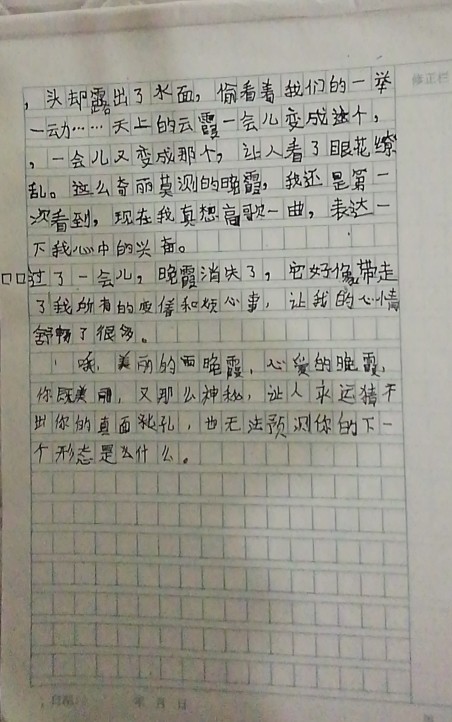 修正栏
，头却露出了水面，偷看着我们的一举
一动……天上的云霞一会儿变成这个，
，一会儿又变成那个，让人看了眼花缭
乱。这么奇丽莫测的晚霞，我还是第一
次看到，现在我真想高歌一曲，表达一
下我心中的兴奋。
过了一会儿，晚霞消失了，它好像带走
了我所有的疲倦和烦心事，让我的心情
舒畅了很多。
哦，美丽的晚霞，心爱的晚霞，
你既美丽，又那么神秘，让人永远猜不
出你的真面孔，也无法预测你的下一
个形态是什么。
日期： 年 月 日